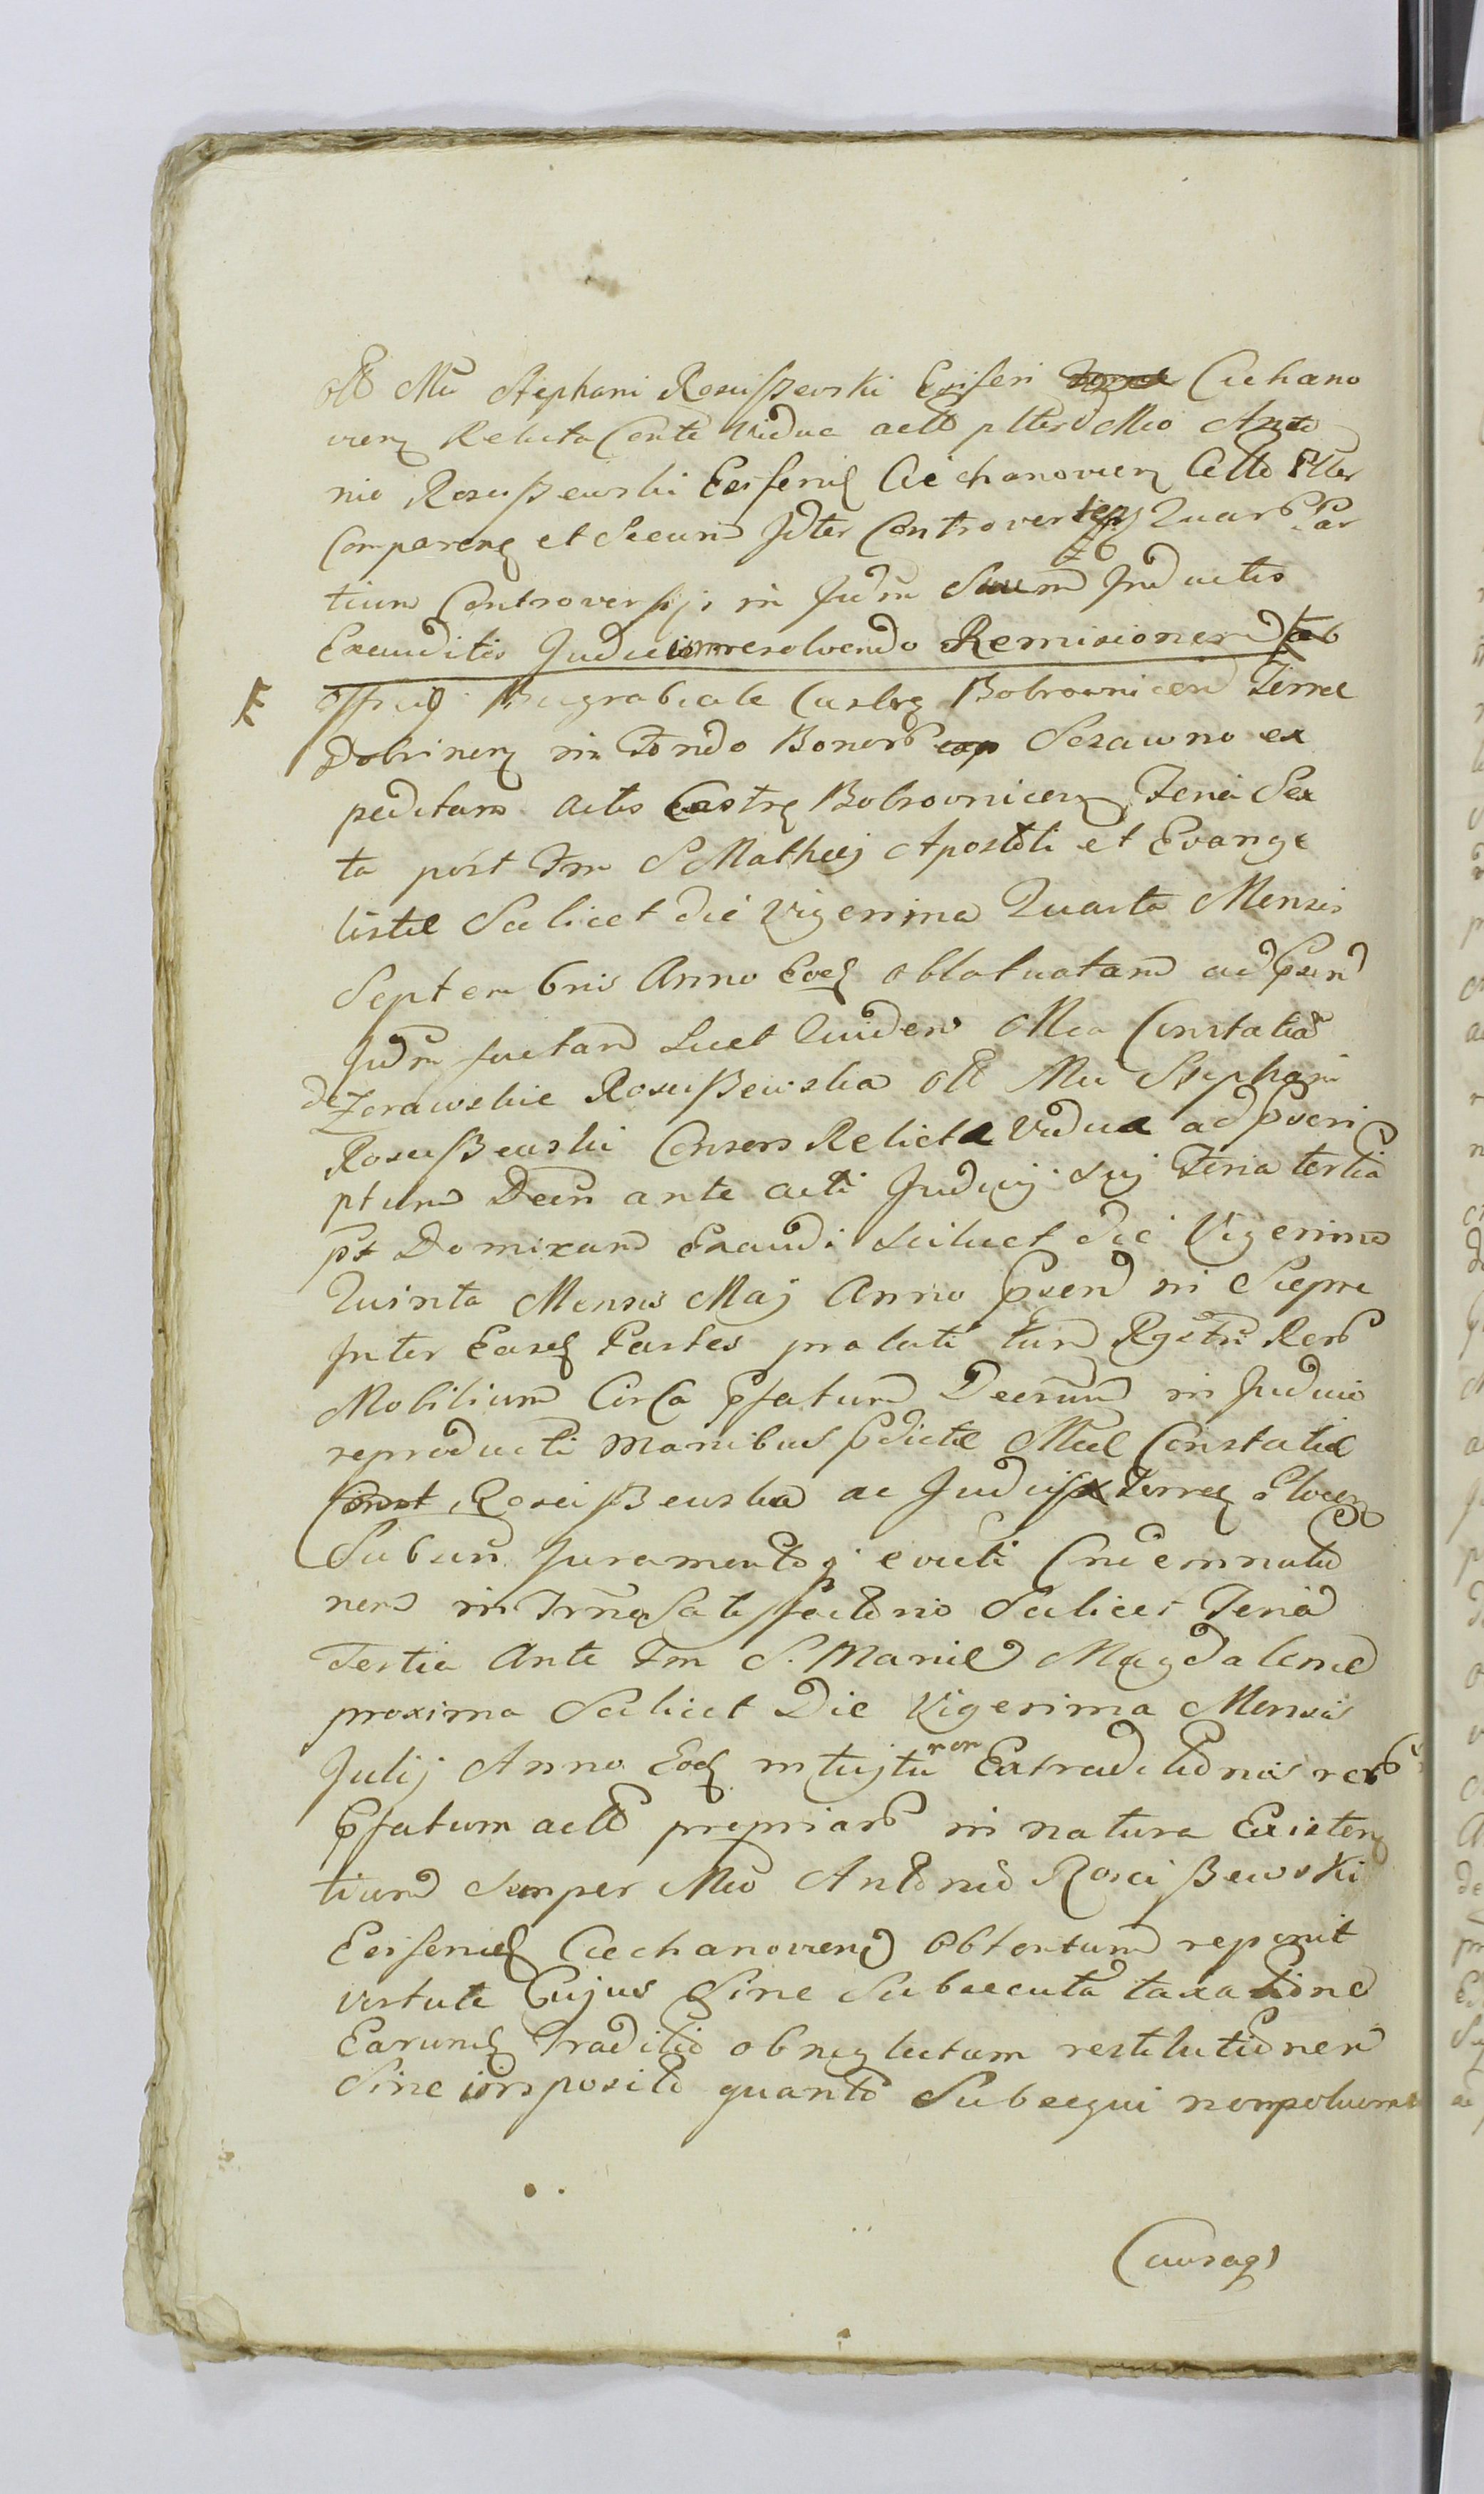 olb Mci Stephani Rosciszewski Ensiferi Ciechano
vien Relicta Conte vidua actto plter Mco Anto
nio Rosciszewski Ensferidę Ciechanovien Cittto Plter
Comparenę et Secum Jdter Controverten Quarb Par
tium Controversijs in Judm Suum Inductis
Exauditis Judicium resolvendo Remisionem ab
Officij Bugrabiale Castrę Bobrownicen Terrae
Dobrinenę in Fondo Bonorb Serawno ex
peditam actis Castrę Bobrownicenę Feria Sex
ta post Fm S Mathei Apostoli et Evange
listae Scilicet die vigesima Quarta Mensis
Septembris Anno Eodę oblatvatam ad Psen
Judm factam Licet Quidem Mca Constatia
de Zorawskie Rosciszewska olb Mci Stephani
Rosciszewski Consors Relicta Vidua ad pscri
ptum Decm ante acti Judicij sui Feria tertia
pst Domicam Exaudi scilicet die Vigesima
Quinta Mensis Maj Anno psen in Siepre
Inter Easdę Partes prolati tum Rgestri Rerb
Mobilium Circa Pfatum Decrum in Judicio
reproducti manibus pdictae Mcae Constatiae
Const Rosciszewska ac Judicij Terrę Plocenę
Subscri Juramentoqi evicti Cnde mnatio
nem in Trna Satisfactionio Scilicet Feria
Tertia Ante Fm S. Mariae Magdalenae
proxima Scilicet Die Vigesima Mensis
Julij Anno Eodę intujtu non Extraditionis rerb
Pfatum actto propriarb in natura Existen
tium semper Mco Antonio Rosciszewski
Ensferidę Ciechanovien Obtentum reponit
virtute Cujus Sine Subsecuta taxatione
Earundę Traditio ob neglectam restitutionem
Sine imposito quanto Subsequi nonpoluerat
Causaqs